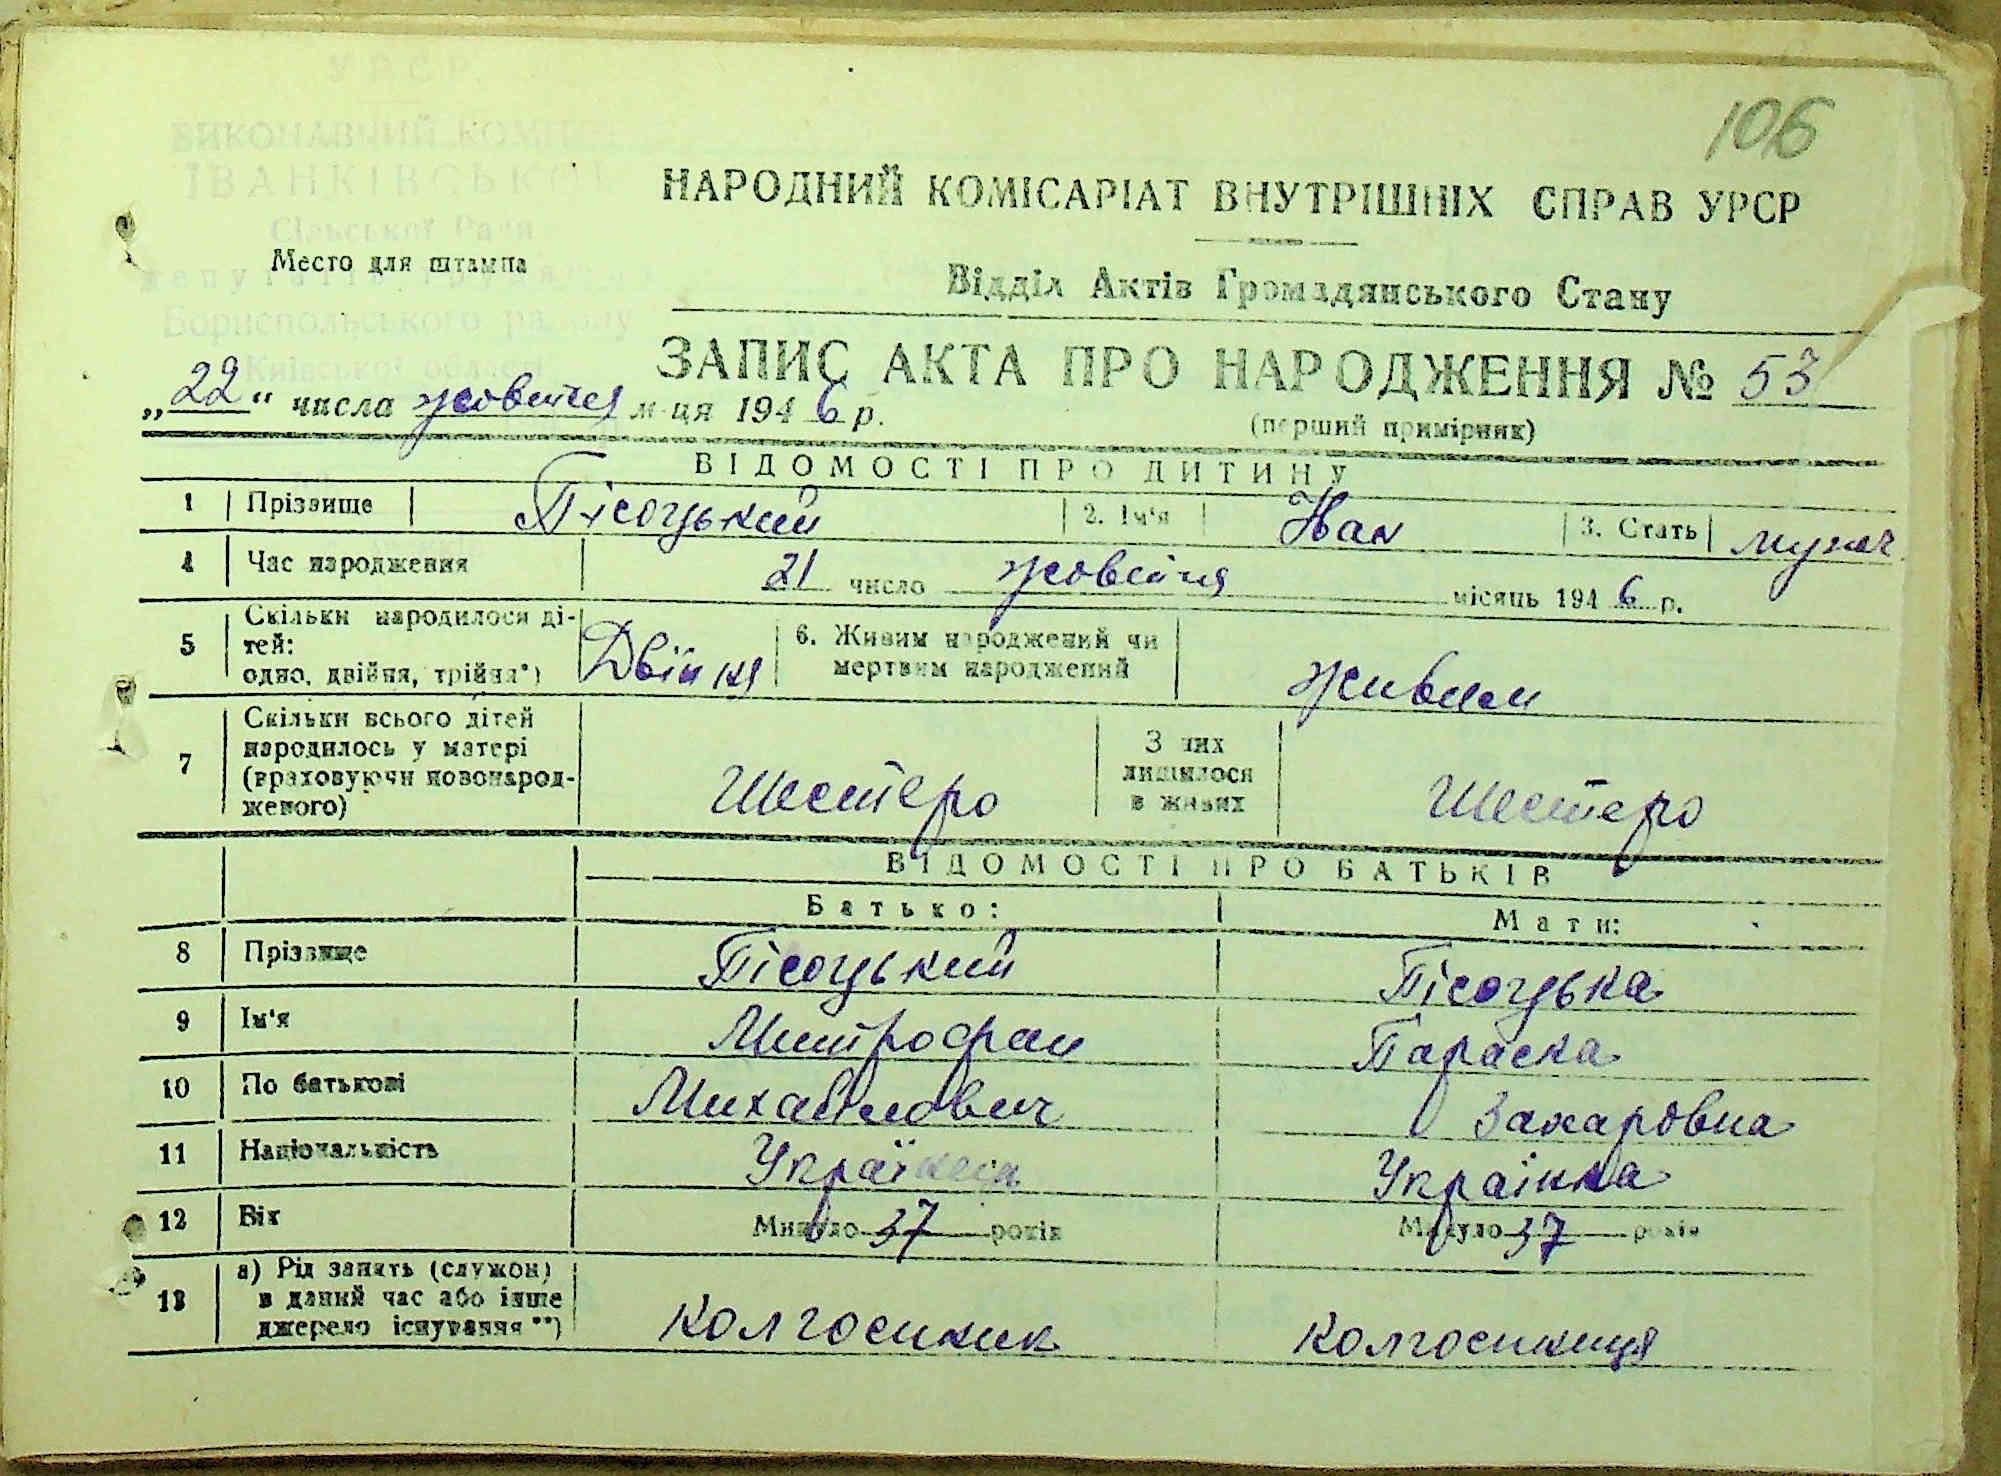 106
УРСР
ВИКОНАВЧИЙ КОМІТЕТ
ІВАНКІВСЬКОЇ
Сільської Ради
депутатів трудящих
Бориспольського району
Київської області
Место для штампа
НАРОДНИЙ КОМІСАРІАТ ВНУТРІШНІХ СПРАВ УРСР
Відділ Актів Громадянського Стану
ЗАПИС АКТА ПРО НАРОДЖЕННЯ № 53
„22“ числа жовтня м-ця 1946 р.
(перший примірник)
ВІДОМОСТІ ПРО ДИТИНУ
1 Прізвище Пісоцький 2. Ім'я Іван 3. Стать муж.
4 Час народження 21 число жовтня місяць 1946 р.
5 Скільки народилося ді-
тей:
одно, двійня, трійня*) Двійня 6. Живим народжений чи
мертвим народжений Живим
7 Скільки всього дітей
народилось у матері
(враховуючи новонарод-
женого) Шестеро З них
лишилося
в живих Шестеро
ВІДОМОСТІ ПРО БАТЬКІВ
Батько: Мати:
8 Прізвище Пісоцький Пісоцька
9 Ім'я Митрофан Параска
10 По батькові Михайлович Захаровна
11 Національність Українец Украінка
12 Вік Минуло 37 років Минуло 37 років
13 а) Рід занять (служби)
в даний час або інше
джерело існування**) Колгосник колгосниця